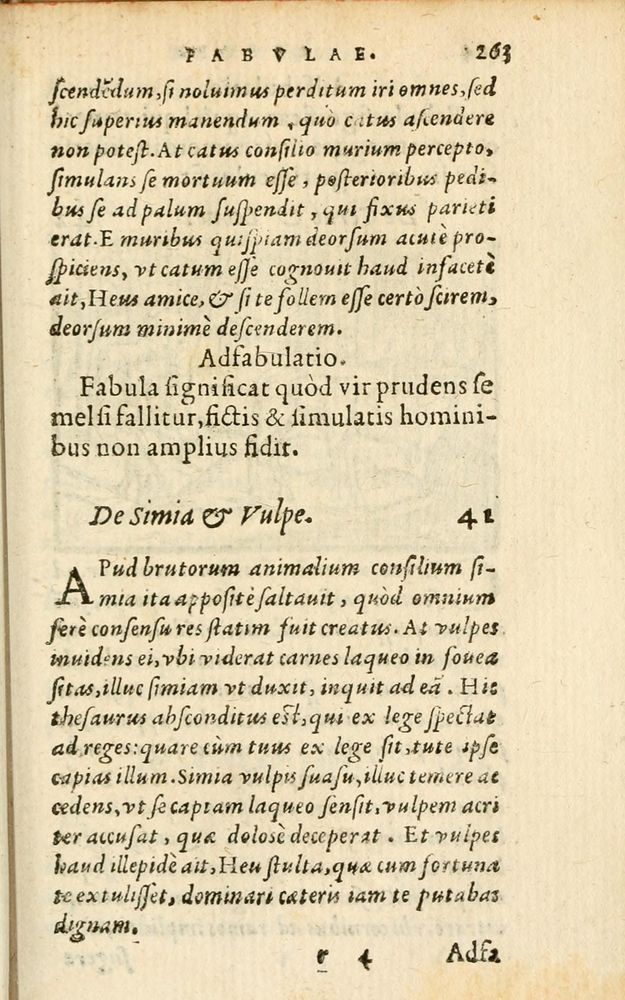 FABVLAE. 263
ſcendẽdum, ſi noluimus perditum iri omnes, ſed
hic ſuperius manendum, quò catus aſcendere
non poteſt. At catus conſilio murium percepto,
ſimulans ſe mortuum eſſe, poſterioribus pedi-
bus ſe ad palum ſuſpendit, qui fixus parieti
erat. E muribus quiſpiam deorſum acutè pro-
ſpiciens, vt catum eſſe cognouit haud infacetè
ait, Heus amice, & ſi te follem eſſe certò ſcirem,
deorſum minimè deſcenderem.
Adfabulatio.
Fabula ſignificat quòd vir prudens ſe
mel ſi fallitur, fictis & ſimulatis homini-
bus non amplius fidit.
De Simia & Vulpe. 41
APud brutorum animalium conſilium ſi-
mia ita appoſitè ſaltauit, quòd omnium
ferè conſenſu res ſtatim fuit creatus. At vulpes
inuidens ei, vbi viderat carnes laqueo in fouea
ſitas, illuc ſimiam vt duxit, inquit ad eã. Hic
theſaurus abſconditus eſt, qui ex lege ſpectat
ad reges: quare cùm tuus ex lege ſit, tute ipſe
capias illum. Simia vulpis ſuaſu, illuc temere ac
cedens, vt ſe captam laqueo ſenſit, vulpem acri
ter accuſat, quæ dolosè deceperat. Et vulpes
haud illepidè ait, Heu ſtulta, quæ cum fortuna
te extuliſſet, dominari cæteris iam te putabas
dignam.
r 4 Adfa